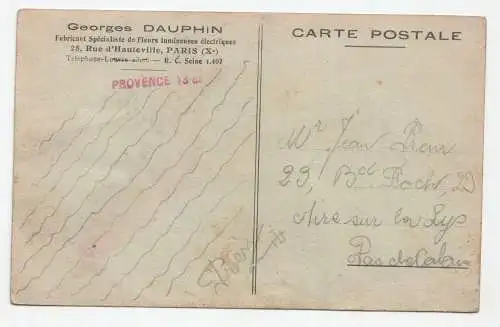 Georges DAUPHIN
Fabricant Spécialiste de Fleurs lumineuses électriques
28, Rue d'Hauteville, PARIS (Xe)
Téléphone-Louvre — R. C. Seine 1.407
PROVENCE
CARTE POSTALE
Mr Jean
29, Bd Foch, 29
Aire sur la Lys
Pas de Calais